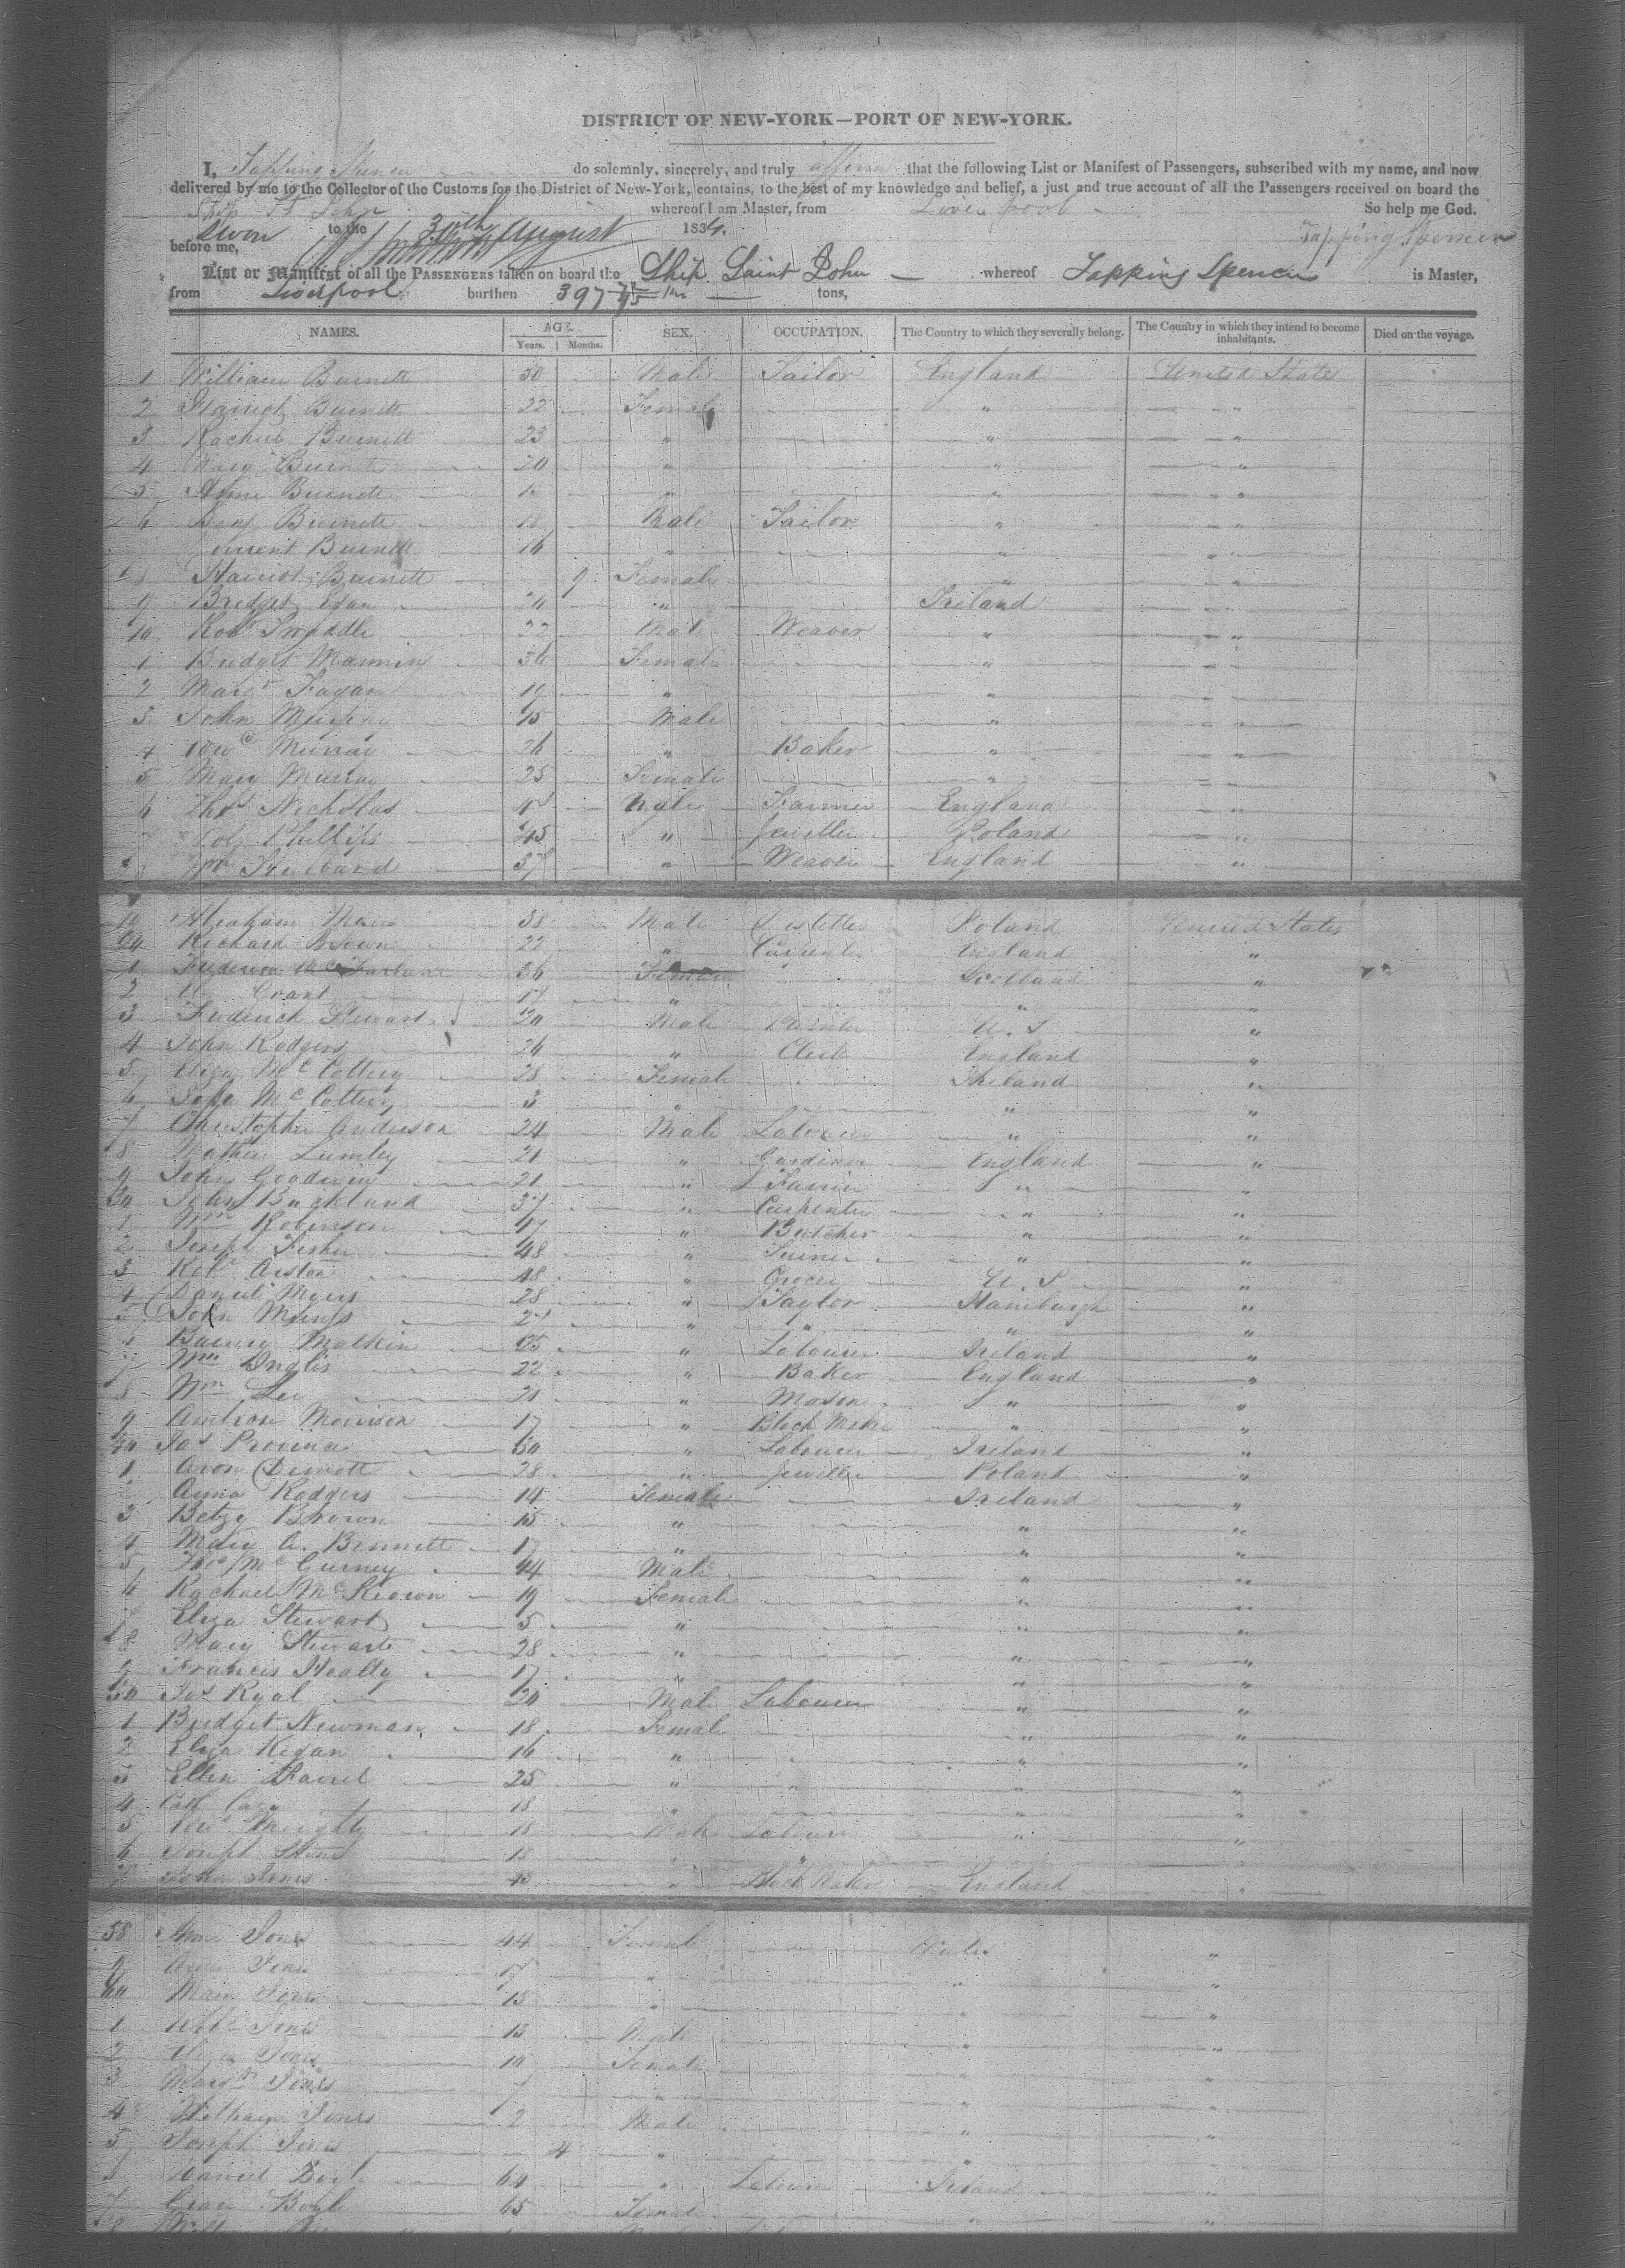 DISTRICT OF NEW-YORK—PORT OF NEW-YORK.
I, Tapping Spencer do solemnly, sincerely, and truly affirm that the following List or Manifest of Passengers, subscribed with my name, and now
delivered by me to the Collector of the Customs for the District of New-York, contains, to the best of my knowledge and belief, a just and true account of all the Passengers received on board the
Ship St John whereof I am Master, from Liverpool So help me God.
Sworn to the 30th August 1834. Tapping Spencer
before me,
List or Manifest of all the PASSENGERS taken on board the Ship Saint John whereof Tapping Spencer is Master,
from Liverpool burthen 397 tons,
NAMES. AGE. SEX. OCCUPATION. The Country to which they severally belong. The Country in which they intend to become inhabitants. Died on the voyage.
Years. Months.
1 William Burnett 30 Male Tailor England United States
2 Harriot Burnett 22 Female " "
3 Rachel Burnett 23 " " "
4 Mary Burnett 20 " " "
5 Burnett " " "
6 Benj Burnett 18 Male Tailor " "
Burnett 16 " " "
8 Harriot Burnett 9 Female " "
9 Bridget Egan 20 " Ireland "
10 Robt Swaddle 22 Male Weaver " "
1 Bridget Manning 36 Female " "
2 Margt Fagan 19 " " "
3 John Murphy Male " "
4 Murray 26 " Baker " "
5 Mary Murray 25 Female " "
6 Thos Nicholas Male Farmer England "
Phillips 45 " Jeweller Poland "
37 " Weaver England "
Abraham 38 Male Poland United States
20 Richard Brown 22 " Carpenter England "
1 McFarlane 36 Female Scotland "
2 Grant 17 " " "
3 Frederick Stewart 20 Male U.S. "
4 John Rodgers 26 " Clerk England "
5 Eliza McCottery 28 Female Ireland "
6 McCottery 3 " " "
7 Christopher Anderson 24 Male Labourer " "
8 Mathew Lumley 21 " Gardener England "
9 John Goodwin 21 " " "
30 John Buckland 37 " Carpenter " "
1 Wm Robinson 47 " Butcher " "
2 Joseph Fisher 48 " " "
3 Robt 48 " Grocer U.S. "
4 Daniel Myers 28 " Taylor Hamburgh "
5 John " " " "
6 Barney Malkin " Labourer Ireland "
7 Wm Inglis 22 " Baker England "
8 Wm Lee 21 " Mason " "
9 Ambrose Morrison 17 " Block Maker " "
40 Jas Province " Labourer Ireland "
1 Aron 28 " Jeweller Poland "
2 Anna Rodgers 14 Female Ireland "
3 Betzy Brown 15 " " "
4 Mary A. Bennett 17 " " "
5 Thos McGurney 44 Male " "
6 Rachael McKeown 19 Female " "
7 Eliza Stewart 5 " " "
8 Mary Stewart 28 " " "
9 Francis Healty 17 " " "
50 Jas Ryal 20 Male Labourer " "
1 Bridget Newman 18 Female " "
2 Eliza Kegan 16 " " "
3 Ellen Farrel 25 " " "
4 Cath 18 " " "
5 18 Male Labourer " "
6 Joseph 18 " " "
7 John Jones " Block Maker England "
58 Jones 44 Female Wales "
9 Jones 17 " " "
60 Mary Jones 15 " " "
1 Robt Jones 13 Male " "
2 Eliza Jones 10 Female " "
3 Margt Jones 7 " " "
4 William Jones 2 Male " "
5 Joseph Jones 4 " " "
Boyle 64 " Labourer Ireland "
7 Grace Boyle 65 Female " "